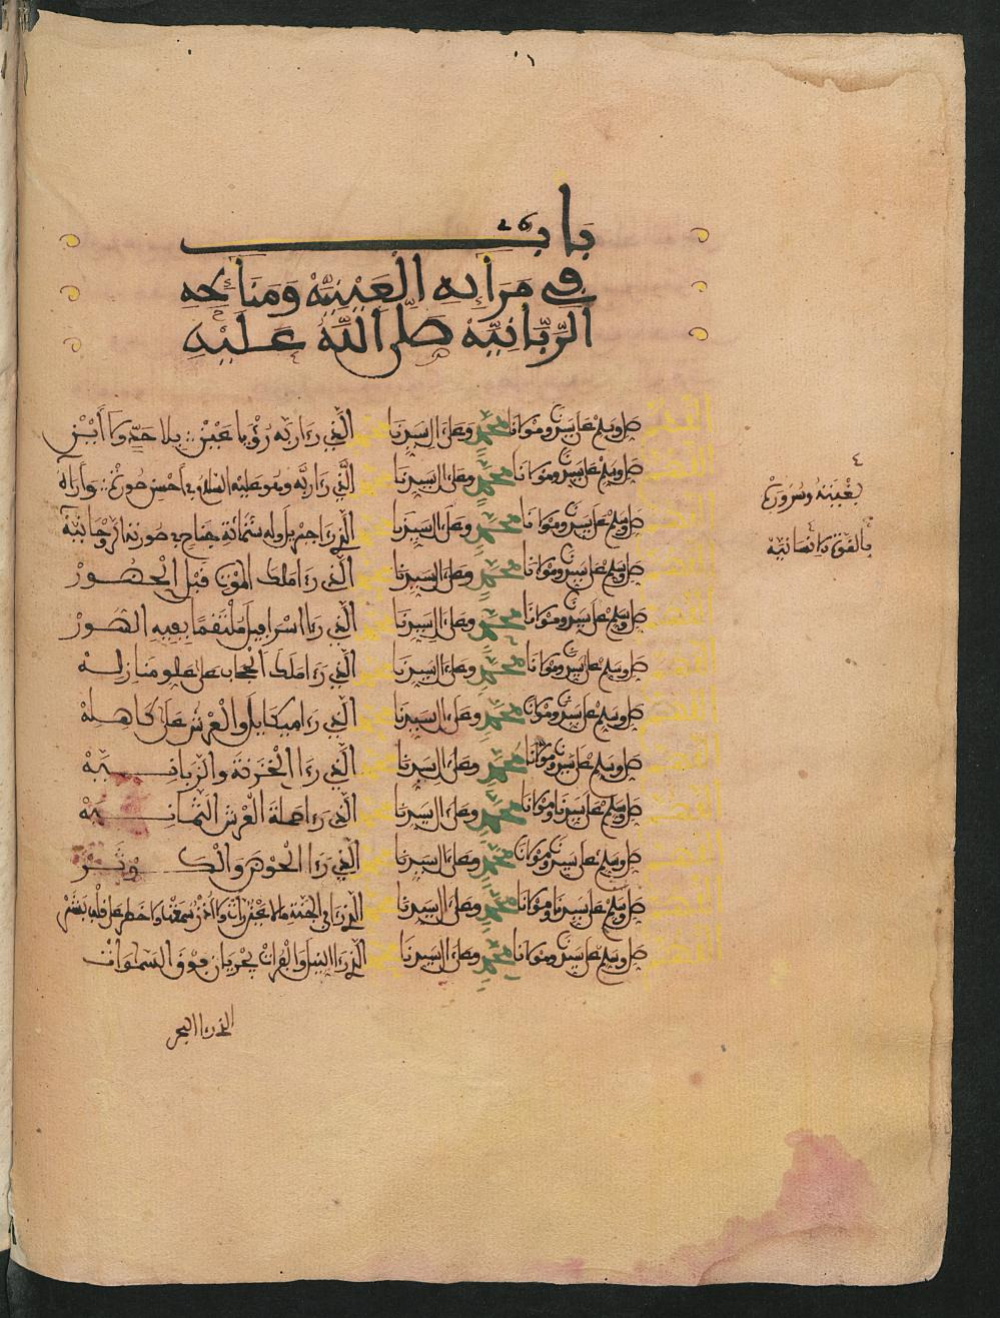 باب
في مرائه العينية ومنائحه
الربانية صلى الله عليه
اللهم صل وسلم على سيدنا ومولانا محمد وعلى آل سيدنا محمد الذي رءا ربه رؤيا عين بلا حد ولا أين
اللهم صل وسلم على سيدنا ومولانا محمد وعلى آل سيدنا محمد الذي رءا ربه وهو عليه السلام في أحسن صورة
اللهم صل وسلم على سيدنا ومولانا محمد وعلى آل سيدنا محمد الذي رءا جبريل وله ستمائة جناح في صورته الروحانية
اللهم صل وسلم على سيدنا ومولانا محمد وعلى آل سيدنا محمد الذي رءا ملك الموت قبل الحضور
اللهم صل وسلم على سيدنا ومولانا محمد وعلى آل سيدنا محمد الذي رءا اسرافيل ملتقما بفيه الصور
اللهم صل وسلم على سيدنا ومولانا محمد وعلى آل سيدنا محمد الذي رءا ملك الحجاب على علو منازله
اللهم صل وسلم على سيدنا ومولانا محمد وعلى آل سيدنا محمد الذي رءا ميكايل والعرش على كاهله
اللهم صل وسلم على سيدنا ومولانا محمد وعلى آل سيدنا محمد الذي رءا الخزنة والزبانية
اللهم صل وسلم على سيدنا ومولانا محمد وعلى آل سيدنا محمد الذي رءا حملة العرش الثمانية
اللهم صل وسلم على سيدنا ومولانا محمد وعلى آل سيدنا محمد الذي رءا الحوض والكوثر
اللهم صل وسلم على سيدنا ومولانا محمد وعلى آل سيدنا محمد الذي رءا في الجنة ما لا عين رأت ولا أذن سمعت ولا خطر على قلب بشر
اللهم صل وسلم على سيدنا ومولانا محمد وعلى آل سيدنا محمد الذي رءا النيل والفرات يجريان فوق السموات
الذي رءا البحر
بالقوة الإنسانية